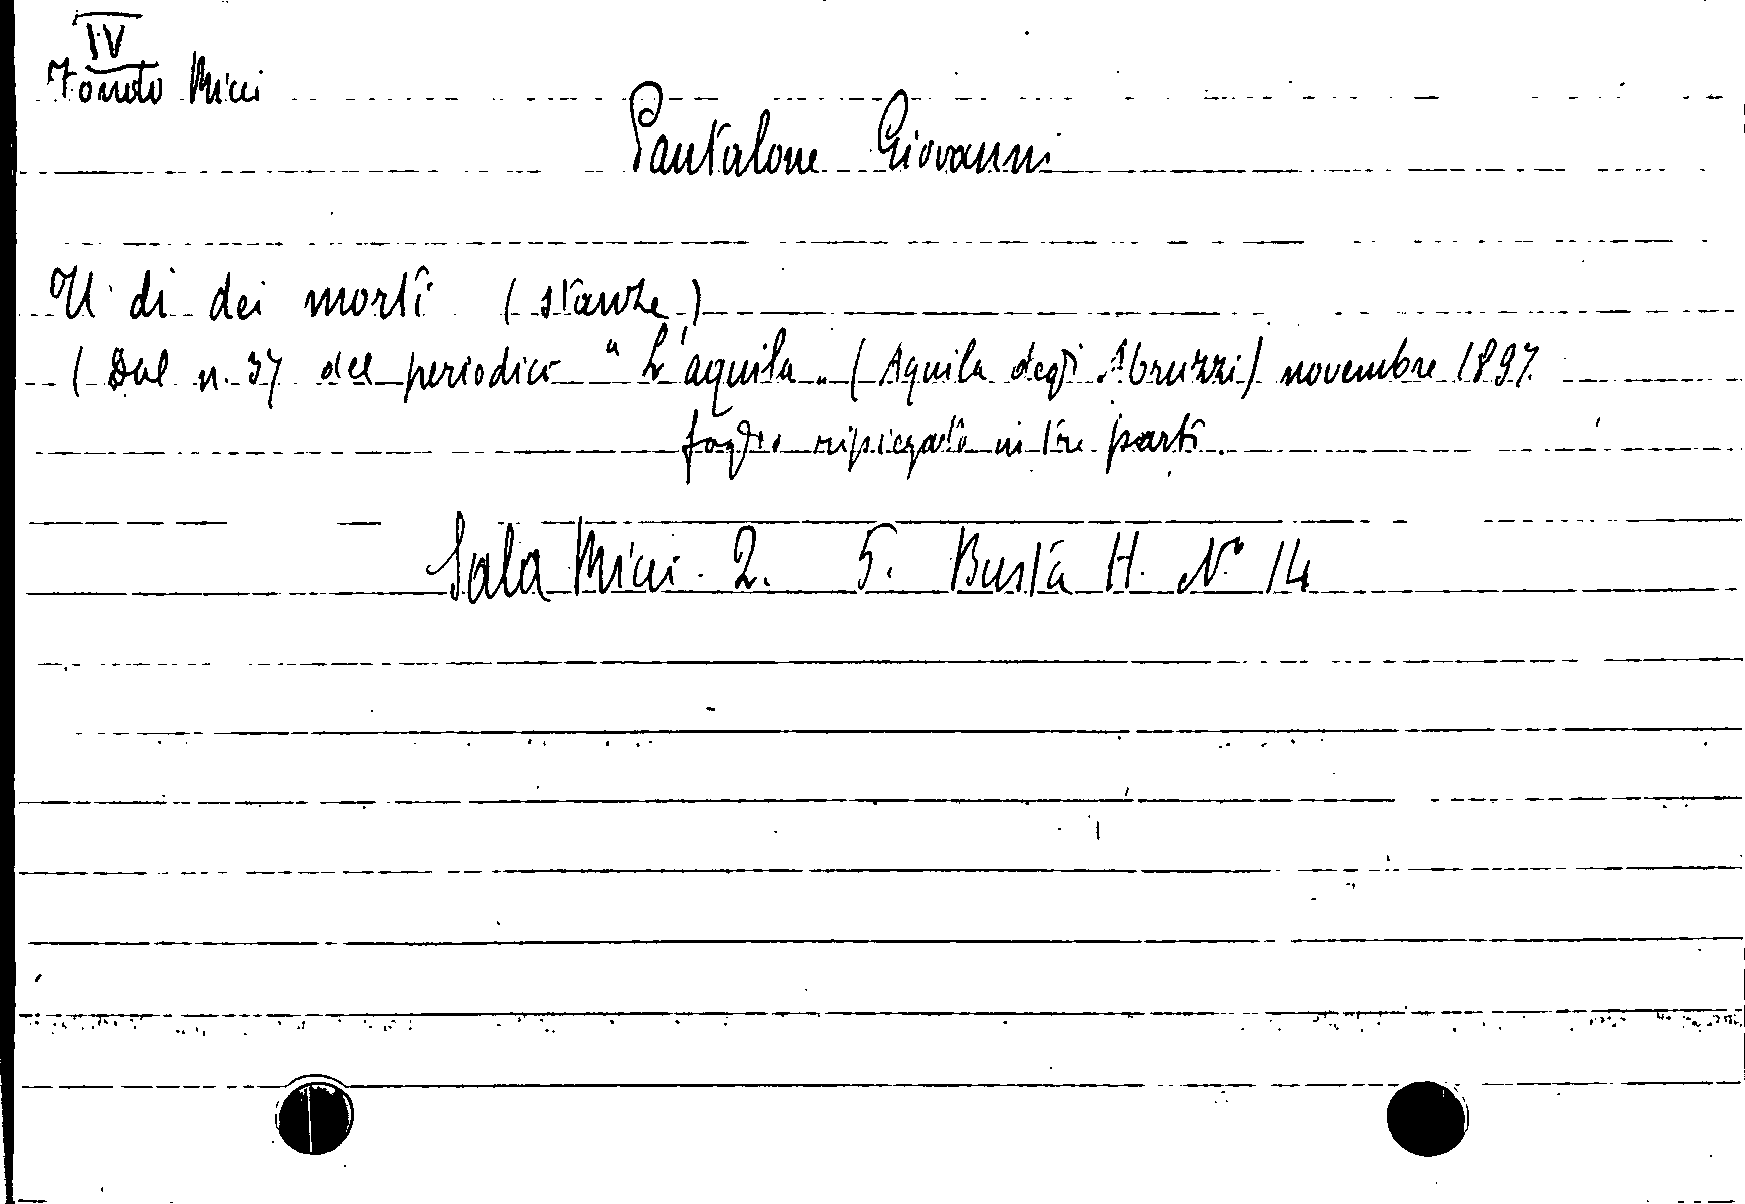 IV
Fondo Micci
Pantalone Giovanni
Il dì dei morti (stanze)
(Dal n. 37 del periodico "L'aquila" (Aquila degli Abruzzi) novembre 1897.
foglio ripiegato in tre parti.
Sala Micci. 2. 5. Busta H. N° 14